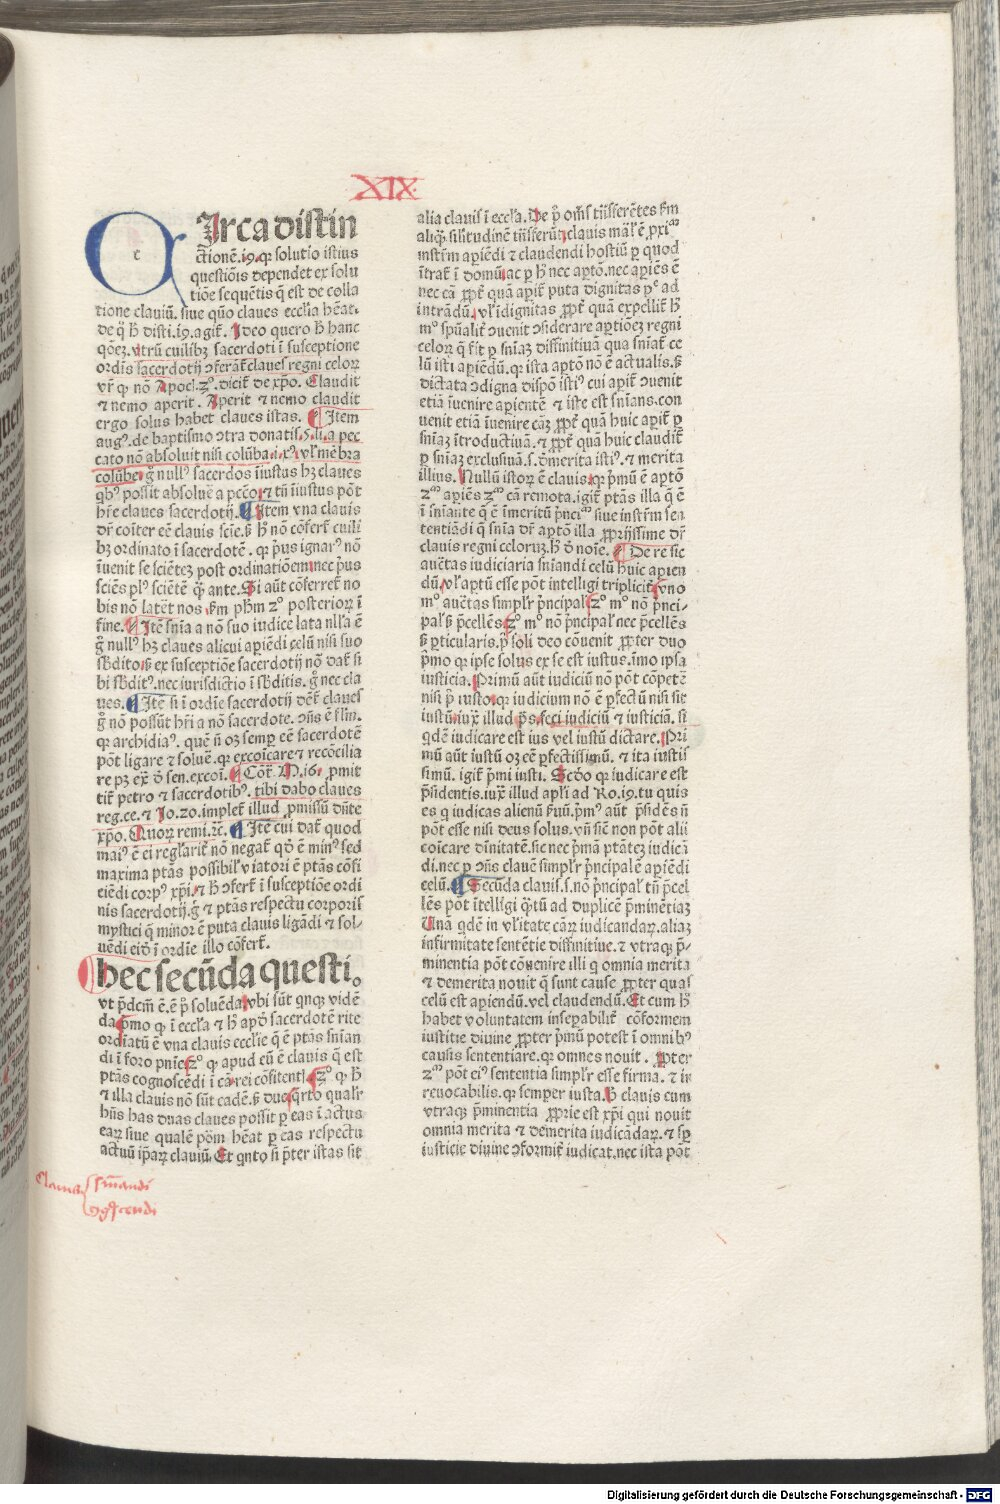 XIX
CIrca distin
ctionē.19.qr solutio istius
questiōis dependet ex solu
tiōe sequētis q̄ est de colla
tione clauiū. siue quō claues ecclīa hēat.
de qͥ h̄ disti.19.agit᷑. Ideo quero h̄ hanc
qōeꝫ.vtrū cuilibꝫ sacerdoti ī susceptione
ordīs sacerdotij ꝯferāt᷑ claues regni celoꝝ
vr̄ qꝫ nō Apocl.2°.dicit᷑ de xp̄o. Claudit
⁊ nemo aperit. Aperit ⁊ nemo claudit
ergo solus habet claues istas. ¶ Item
augꝰ.de baptismo ꝯtra donatis.5.li.a pec
cato nō absoluit nisi colūba
colūbe.ḡ nullꝰ sacerdos īiustus hꝫ claues
qͥbꝰ possit absoluē a pccō.⁊ tn̄ īiustus pōt
hr̄e claues sacerdotij. ¶ Item vna clauis
dr̄ cōiter eē clauis scīe.ß h̄ nō cōfert᷑ cuili
bꝫ ordinato ī sacerdotē. qꝛ pͥus ignarꝰ nō
īuenit se sciēteꝫ post ordinatiōem.nec pͥus
sciēs plꝰ sciētē qͣꝫ ante.Si aūt cōferret᷑ no
bis nō latēt nos.ßm phm̄ 2° posterioꝝ ī
fine. ¶ Itē snīa a nō suo iudice lata nlla ē
ḡ nullꝰ hꝫ claues alicui apiēdi celū nisi suo
sb̄dito.ß ex susceptiōe sacerdotij nō dat᷑ si
bi sb̄ditꝰ.nec iurisdictio ī sb̄ditis.ḡ nec cla
ues. ¶ Itē si ī ordīe sacerdotij dēt᷑ claues
ḡ nō possūt hr̄i a nō sacerdote. ꝯn̄s ē fl̄m.
qꝛ archidiaꝰ. quē n̄ oꝫ semp eē sacerdotē
pōt ligare ⁊ soluē.qꝛ excōicare ⁊ recōcilia
re pꝫ ex̄ d̄ sen.excōi. ¶ Cōtͣ M.16. pmit
tit᷑ petro ⁊ sacerdotibꝰ. tibi dabo claues
reg.ce.⁊ Io.20.implet᷑ illud pmissū dn̄te
xp̄o. Quoꝝ remi.⁊c. ¶ Itē cui dat᷑ quod
maiꝰ ē ei regl̄arit᷑ nō negat᷑ qd̄ ē minꝰ.sed
maxima ptās possibil̄ viatori ē ptās cōfi
ciēdi corpꝰ xp̄i.⁊ h̄ ꝯfert᷑ ī susceptiōe ordi
nis sacerdotij.ḡ ⁊ ptās respectu corporis
mystici q̄ minor ē puta clauis ligādi ⁊ sol-
uēdi eiꝰ ī ordīe illo cōfert᷑.
¶ hec secūda questi
vt pͥdcm̄ ē.ē pͥ soluēda.vbi sūt qnqꝫ vidē
da.pͥmo qꝫ ī eccl̄a ⁊ h̄ apd̄ sacerdotē rite
ordīatū ē vna clauis ecclīe q̄ ē ptās snīan
di ī foro pnīe.2° qꝫ apud eū ē clauis q̄ est
ptās cognoscēdi ī cā rei cōfitent̄.2° qꝫ h̄
⁊ illa clauis nō sūt cadē.ß due.qͣrto qualr̄
hn̄s has duas claues possit p eas ī actus
eaꝝ siue qualē pōm hēat p eas respectu
actuū ip̄aꝝ clauiū.Et qnto si pͥter istas sit
alia clauis ī eccl̄a. De pͥ om̄s tn̄sferētes ßm
aliqͣꝫ sil̄itudinē tn̄sferūt.clauis mal̄ ē ꝓxīᵃ
instr̄m apiēdi ⁊ claudendi hostiū p quod
ītrat᷑ ī domū.ac p h̄ nec aptō.nec apiēs ē
nec cā ꝓpt᷑ quā apit᷑ puta dignitas pꝰ ad
intrādū.vl̄ īdignitas ꝓpt᷑ quā expellit᷑ h̄
m° spūalit᷑ ꝯuenit ꝯsiderare aptiōeꝫ regni
celoꝝ q̄ fit p snīaꝫ diffinitiuā qua snīat᷑ ce
lū isti apiēdū.qꝛ ista aptō nō ē actualis.ß
dictata ꝯdigna dispō istiꝰ cui apit᷑ ꝯuenit
etiā īuenire apientē ⁊ iste est snīans.con
uenit etiā īuenire cāꝫ ꝓpt᷑ quā huic apit᷑ p
snīaꝫ ītroductiuā.⁊ ꝓpt᷑ quā huic claudit᷑
p snīaꝫ exclusiuā.s.d̄merita istiꝰ.⁊ merita
illius. Nullū istoꝝ ē clauis.qꝛ pͥmū ē aptō
2ᵐ apiēs 2ᵐ cā remota.igit᷑ ptās illa q̄ ē
ī snīante q̄ ē īmeritū pͥnciᵐ siue instr̄m sen
tentiādi q̄ snīa dr̄ aptō illa ꝓprijssime dr̄
clauis regni celoruꝫ.h̄ d̄ noīe. ¶ De re sic
auētas iudiciaria snīandi celū huic apien
dū.vl̄ aptū esse pōt intelligi triplicit᷑.vno
m° auētas simplr̄ pͥncipal̄.2° m° nō pͥnci-
pal̄ ß pͥcellēs.2° m° nō pͥncipal̄ nec pͥcellēs
ß pticularis.pͥ soli deo cōuenit ꝓpter duo
pͥmo qꝛ ipse solus ex se est iustus.īmo ipsa
iusticia.Primū aūt iudiciū nō pōt cōpetē
nisi pͥ iusto.qꝛ iudicium nō ē pfectū nisi sit
iustū.iuxͣ illud ps.feci iudiciū ⁊ iusticiā. si
qͥdē iudicare est ius vel iustū dictare. Pri
mū aūt iustū oꝫ eē pfectissimū. ⁊ ita iustis
simū. igit᷑ pͥmi iusti. Scd̄o qꝛ iudicare est
pͥsidentis.iuxͣ illud apl̄i ad Ro.19.tu quis
es q iudicas alienū ßuū.pͥmꝰ aūt pͥsidēs n̄
pōt esse nisi deus solus.vn̄ sic̄ non pōt alii
cōicare dīnitatē.sic nec pͥmā ptāteꝫ iudicā
di.nec p ꝯn̄s clauē simplr̄ pͥncipalē apiēdi
celū. ¶ Secūda clauis.s.nō pͥncipal̄ tn̄ pͥcel
lēs pōt ītelligi qͣꝫtū ad duplicē pͥminētiaꝫ
Vnā qͥdē in vl̄itate cāꝝ iudicandaꝝ.aliaꝫ
infirmitate sentētie diffinitiue.⁊ vtraqꝫ pͥ-
minentia pōt cōuenire illi q omnia merita
⁊ demerita nouit q̄ sunt cause ꝓpter quas
celū est apiendū.vel claudendū.Et cum h̄
habet voluntatem insepabilit᷑ cōformem
iustitie diuine ꝓpter pͥmū potest ī omnibꝰ
causis sententiare.qꝛ omnes nouit. Ꝓpter
2ᵐ pōt eiꝰ sententia simplr̄ esse firma.⁊ ir
reuocabilis.qꝛ semper iusta.h̄ clauis cum
vtraqꝫ pͥminentia ꝓprie est xp̄i qui nouit
omnia merita ⁊ demerita iudicādaꝝ.⁊ sꝑ
iusticie diuine ꝯformit᷑ iudicat.nec ista pōt
Clauis
Digitalisierung gefördert durch die Deutsche Forschungsgemeinschaft - DFG